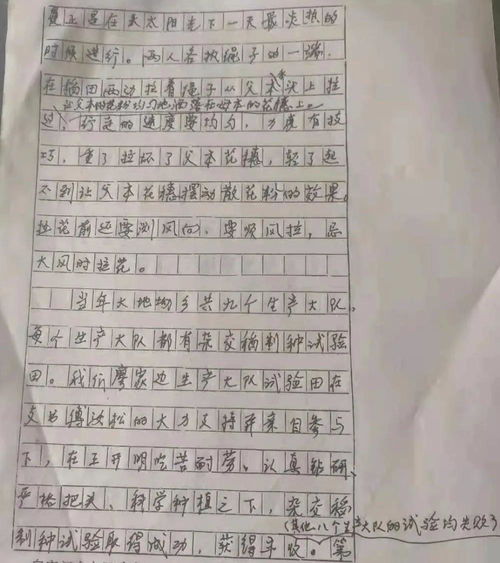 是在大太阳光下一天最炎热的
时候进行。两人各执绳子的一端,
在稻田两边拉着绳子从父本头上拉
让父本的花粉均匀地洒落在母本的花穗上。
过,行走的速度要均匀,力度有技
巧,重了拉坏了父本花穗,轻了起
不到让父本花穗摆动散花粉的效果。
拉花前还要测风向,要顺风拉,忌
大风时拉花。
当年大地坳乡共九个生产大队,
每个生产大队都有杂交稻制种试验
田。我们廖家边生产大队试验田在
支书 松的大力支持并亲自参与
下,在王开明吃苦耐劳、认真钻研、
严格把关、科学种植之下,杂交稻
(其他八个生产大队的试验均失败)
制种试验取得成功,获得丰收。第